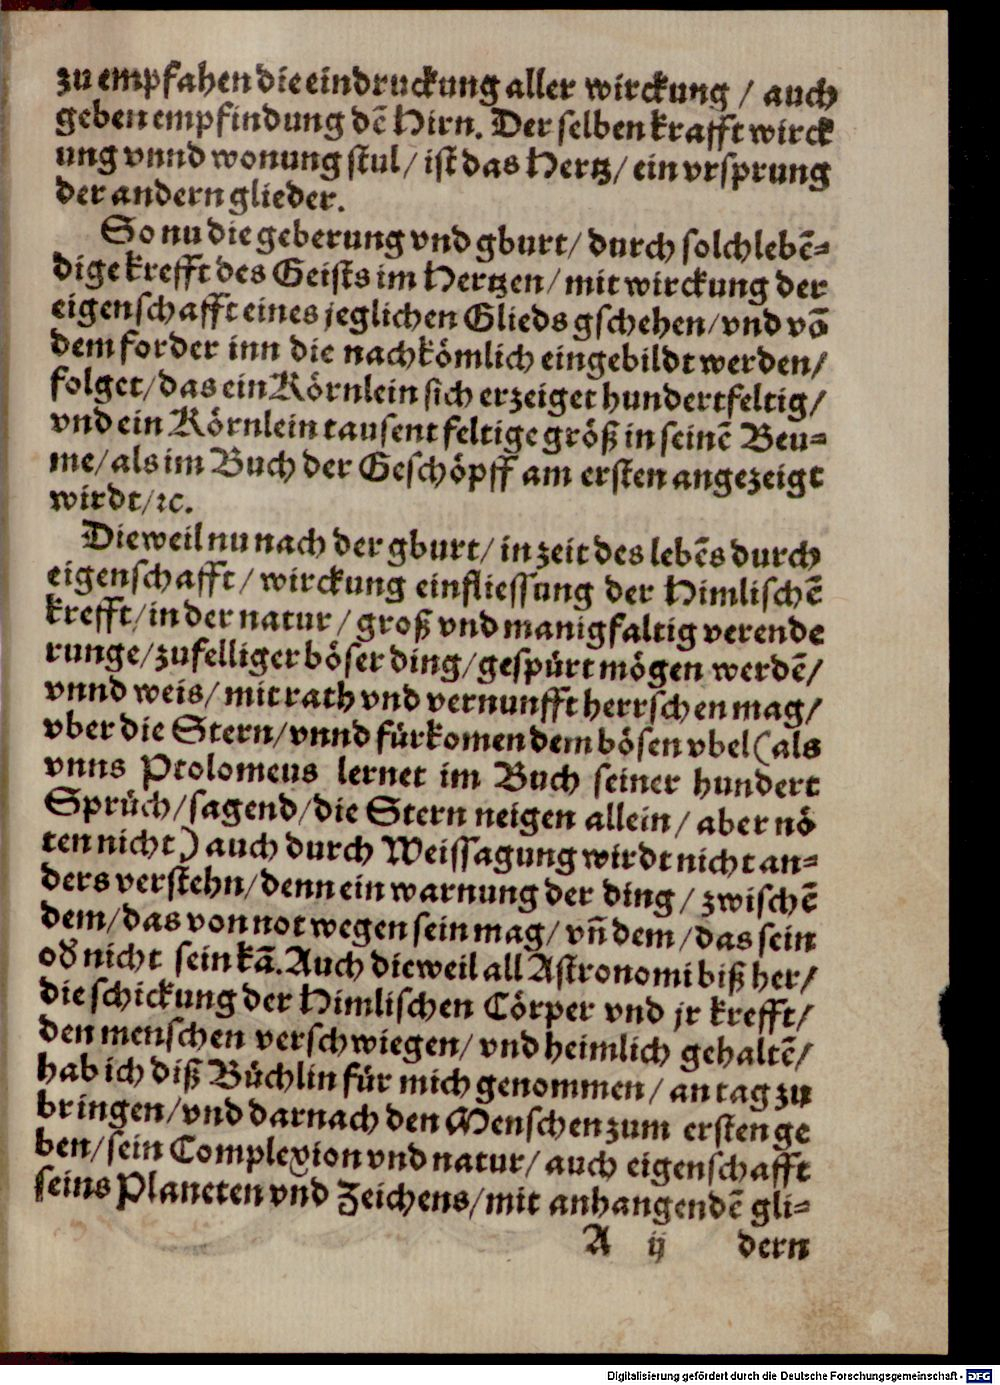 zu empfahen die eindruckung aller wirckung / auch
geben empfindung dē Hirn. Der selben krafft wirck
ung vnnd wonung stul / ist das Hertz / ein vrsprung
der andern glieder.
So nu die geberung vnd gburt / durch solch lebē-
dige krefft des Geists im Hertzen / mit wirckung der
eigenschafft eines jeglichen Glieds gschehen / vnd vō
dem forder inn die nachkömlich eingebildt werden /
folget / das ein Körnlein sich erzeiget hundertfeltig /
vnd ein Körnlein tausent feltige größ in seinē Beu-
me / als im Buch der Geschöpff am ersten angezeigt
wirdt / ⁊c.
Dieweil nu nach der gburt / in zeit des lebēs durch
eigenschafft / wirckung einfliessung der Himlischē
krefft / in der natur / groß vnd manigfaltig verende
runge / zufelliger böser ding / gespürt mögen werdē /
vnnd weis / mit rath vnd vernunfft herrschen mag /
vber die Stern / vnnd fürkomen dem bösen vbel (als
vnns Ptolomeus lernet im Buch seiner hundert
Sprüch / sagend / die Stern neigen allein / aber nö
ten nicht) auch durch Weissagung wirdt nicht an-
ders verstehn / denn ein warnung der ding / zwischē
dem / das von not wegen sein mag / vn̄ dem / das sein
od' nicht sein kā. Auch dieweil all Astronomi biß her /
die schickung der Himlischen Cörper vnd jr krefft /
den menschen verschwiegen / vnd heimlich gehaltē /
hab ich diß Büchlin für mich genommen / an tag zu
bringen / vnd darnach den Menschen zum ersten ge
ben / sein Complexion vnd natur / auch eigenschafft
seins Planeten vnd Zeichens / mit anhangendē gli-
A ij dern
Digitalisierung gefördert durch die Deutsche Forschungsgemeinschaft - DFG